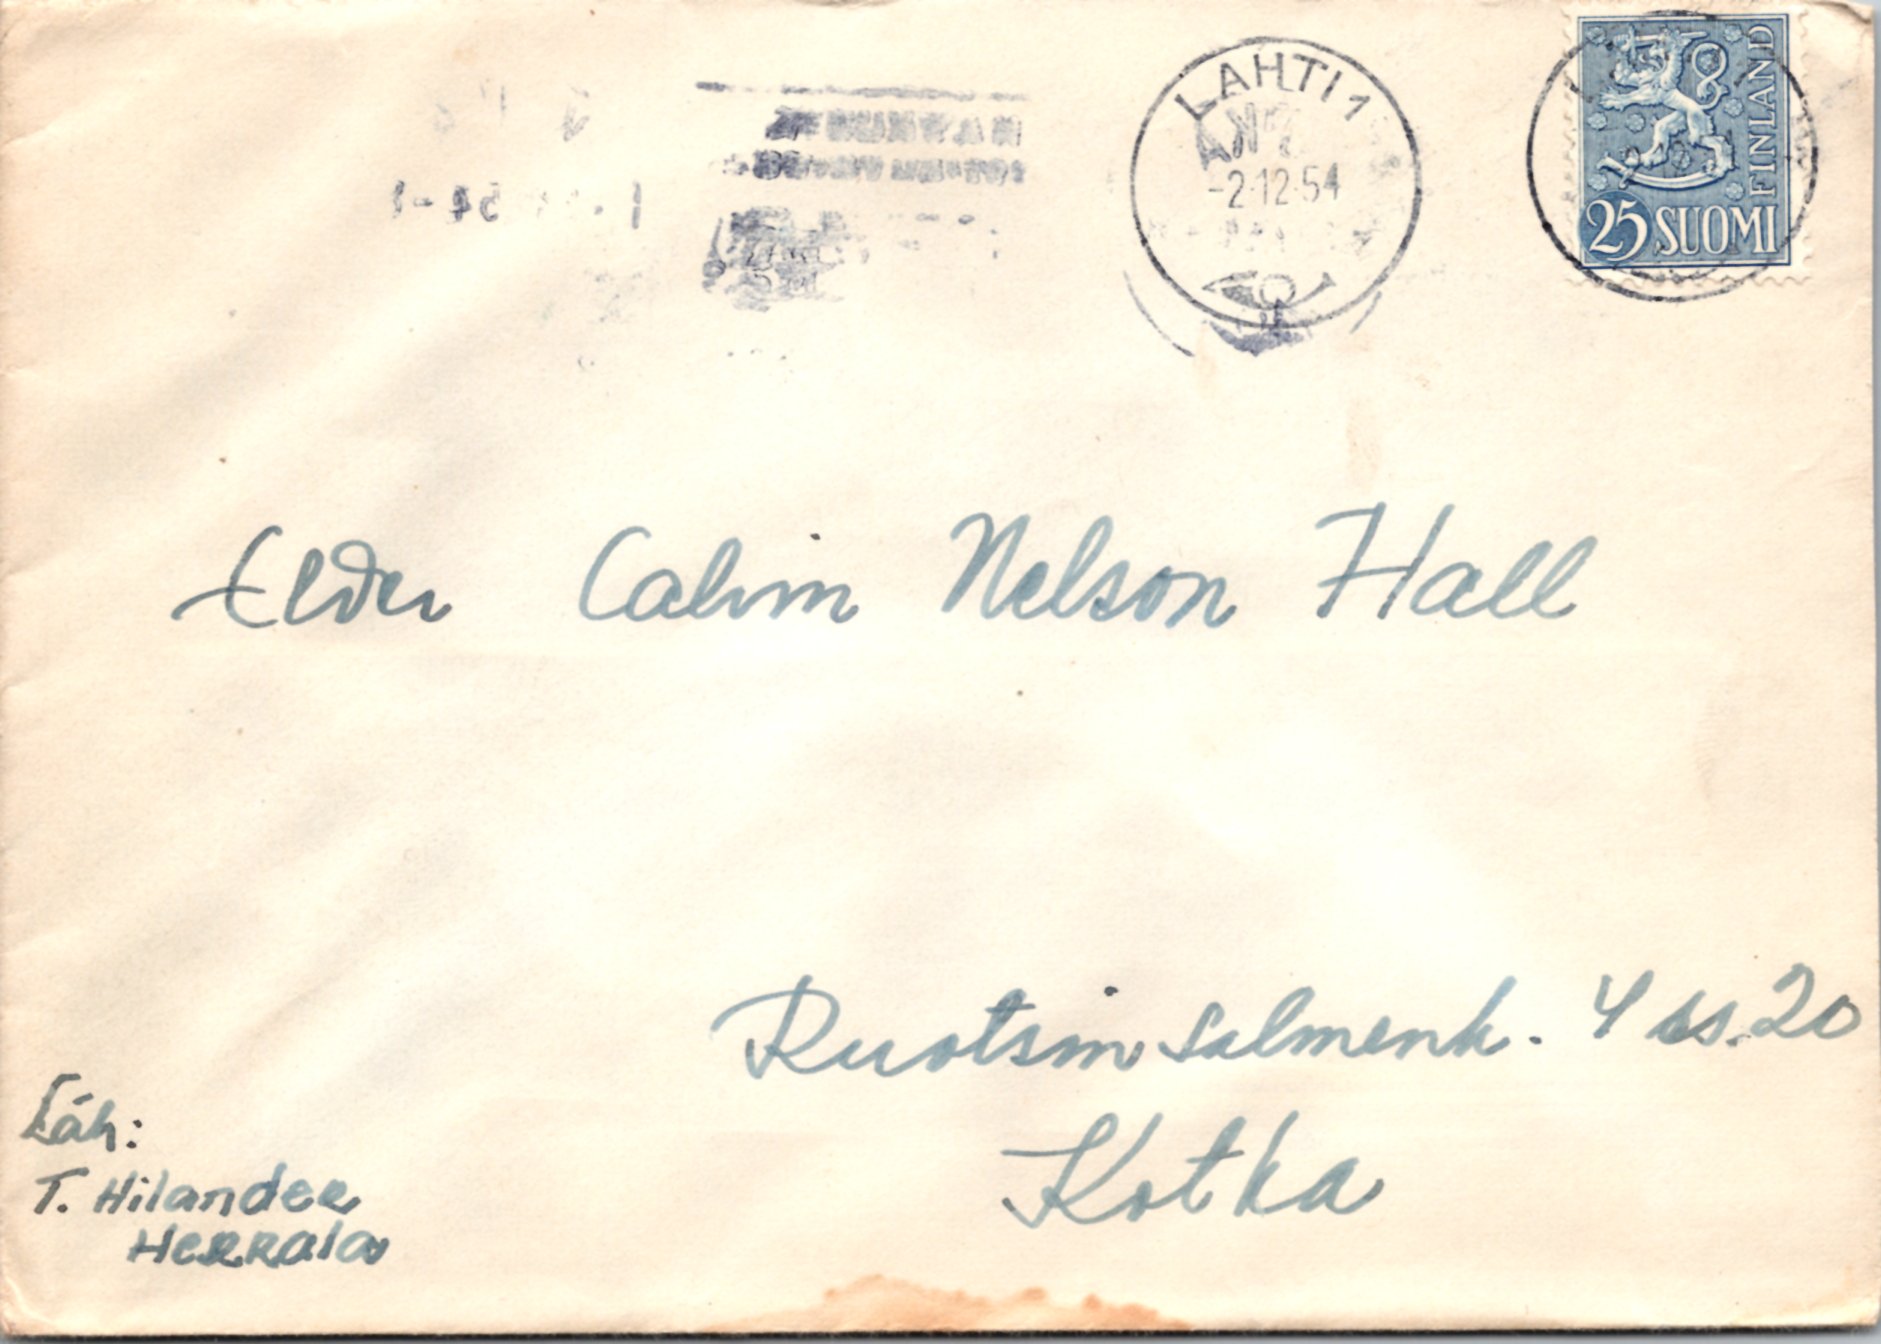 LAHTI 1
-2.12.54
FINLAND
25 SUOMI
Elder Calvin Nelson Hall
Ruotsinsalmenk. 4 as. 20
Kotka
Läh:
T. Hilander
Herrala